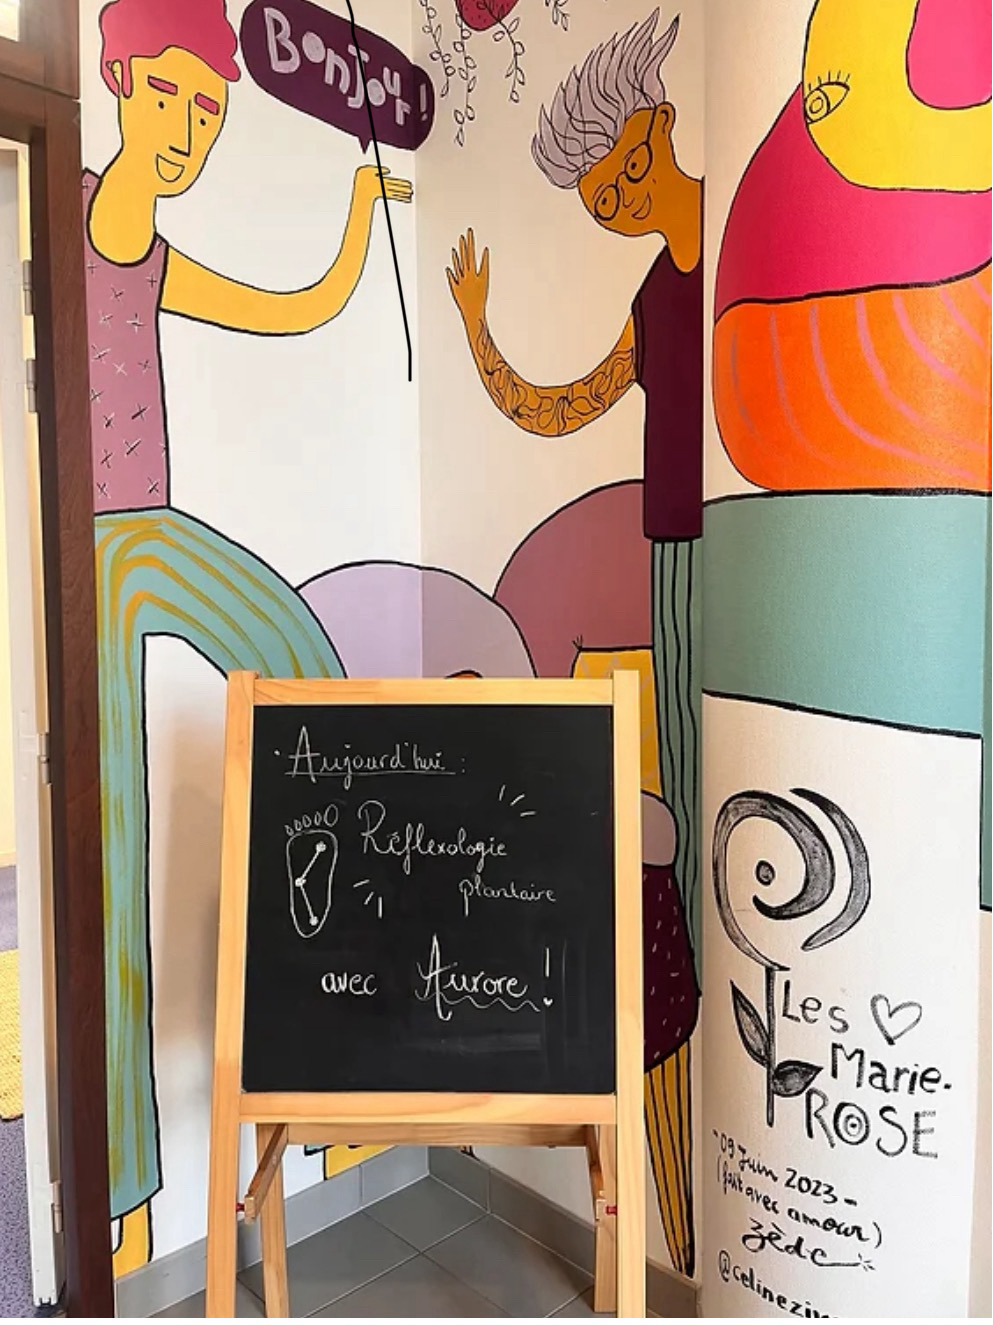 Bonjour !
Aujourd'hui :
Réflexologie
plantaire
avec Aurore !
Les
Marie-
ROSE
- 09 Juin 2023 -
(fait avec amour)
zède